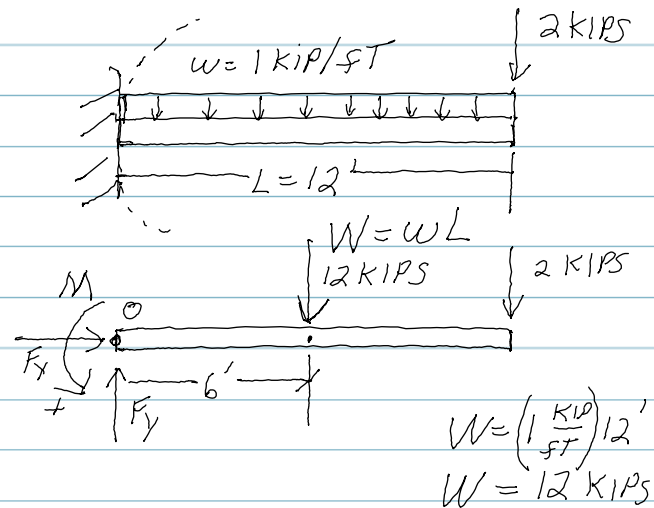 2 KIPS
w = 1 KIP/fT
L = 12'
W = wL
12 KIPS
2 KIPS
M
O
Fx
+
6'
Fy
W = (1 KIP/fT) 12'
W = 12 KIPS